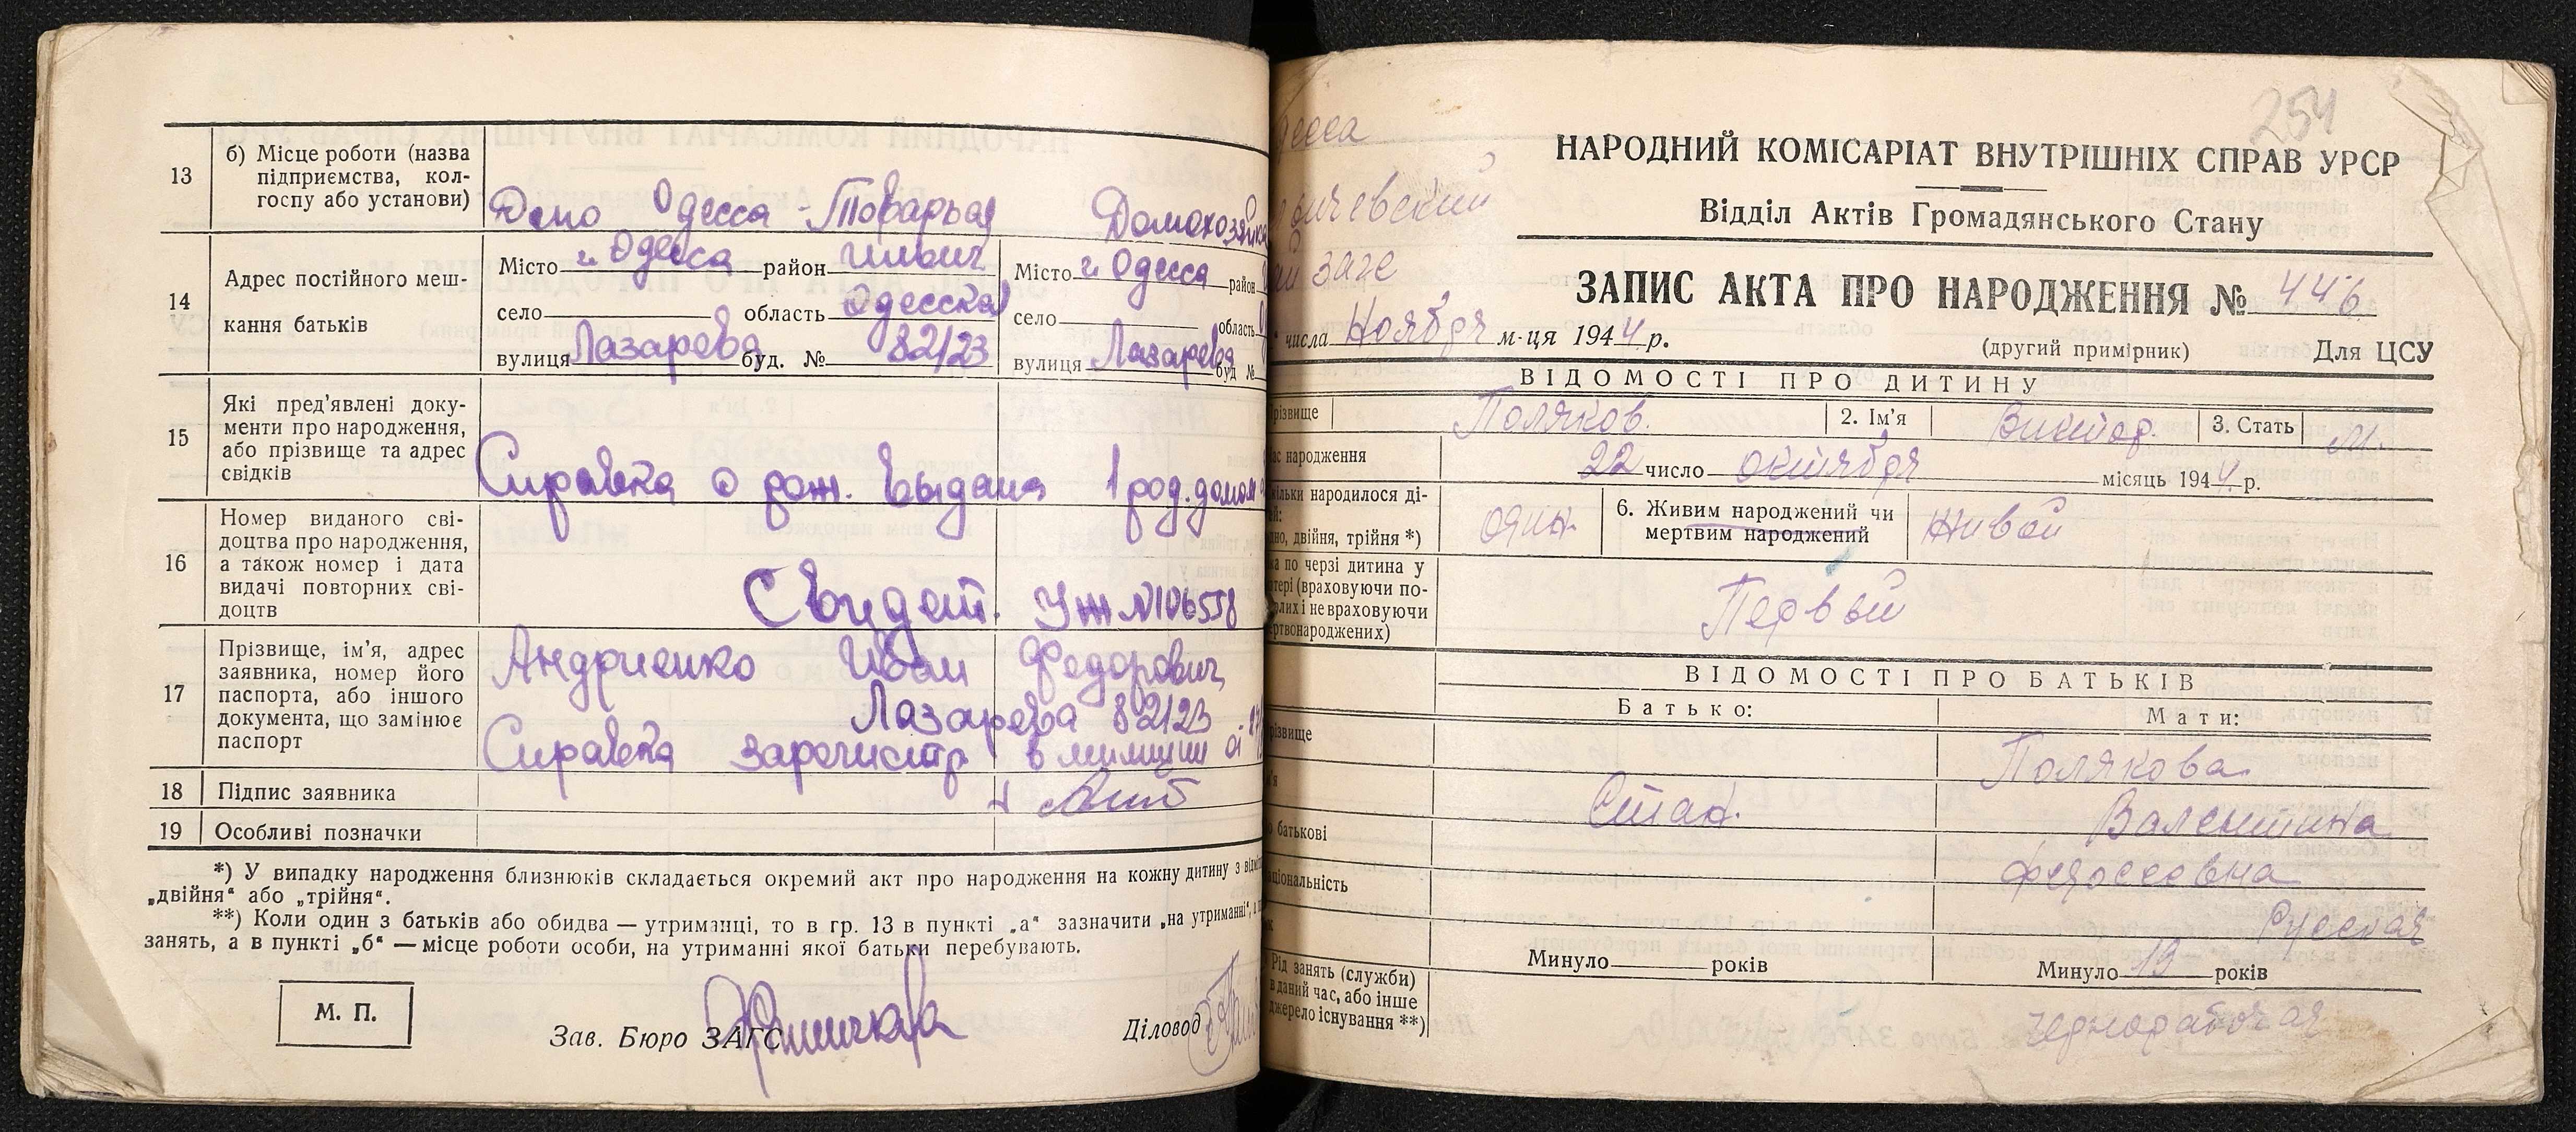 13
б) Місце роботи (назва
підприємства, кол-
госпу або установи)
Депо Одесса-Товарная
Домохозяйка
14
Адрес постійного меш-
кання батьків
Місто г. Одесса район Ильич
село область Одесская
вулиця Лазарева буд. № 82/23
Місто г. Одесса район
село область
вулиця Лазарева буд №
15
Які пред'явлені доку-
менти про народження,
або прізвище та адрес
свідків
Справка о рож. выдана 1 род. домом
16
Номер виданого сві-
доцтва про народження,
а також номер і дата
видачі повторних сві-
доцтв
Свидет. УЖ №106558
17
Прізвище, ім'я, адрес
заявника, номер його
паспорта, або іншого
документа, що замінює
паспорт
Андриенко Иван Федорович
Лазарева 82/23
Справка зарегистр в милиции от
18
Підпис заявника
19
Особливі позначки
*) У випадку народження близнюків складається окремий акт про народження на кожну дитину з
„двійня“ або „трійня“.
**) Коли один з батьків або обидва — утриманці, то в гр. 13 в пункті „а“ зазначити „на утриманні“,
занять, а в пункті „б“ — місце роботи особи, на утриманні якої батьки перебувають.
М. П.
Зав. Бюро ЗАГС
Діловод
254
десса
ичевский
заге
НАРОДНИЙ КОМІСАРІАТ ВНУТРІШНІХ СПРАВ УРСР
Відділ Актів Громадянського Стану
ЗАПИС АКТА ПРО НАРОДЖЕННЯ № 446
числа Ноября м-ця 1944 р.
(другий примірник)
Для ЦСУ
ВІДОМОСТІ ПРО ДИТИНУ
різвище Поляков. 2. Ім'я Виктор. 3. Стать М.
ас народження 22 число октября місяць 1944 р.
ільки народилося ді-
ей:
дно, двійня, трійня *)
один
6. Живим народжений чи
мертвим народжений
Живой
ка по черзі дитина у
тері (враховуючи по-
рлих і не враховуючи
ертвонароджених)
Первый
ВІДОМОСТІ ПРО БАТЬКІВ
Батько:
Мати:
різвище
Полякова
м'я
Валентина
о батькові
Федоссовна
ціональність
Русская
Минуло років
Минуло 19 років
Рід занять (служби)
в даний час, або інше
джерело існування **)
чернорабочая